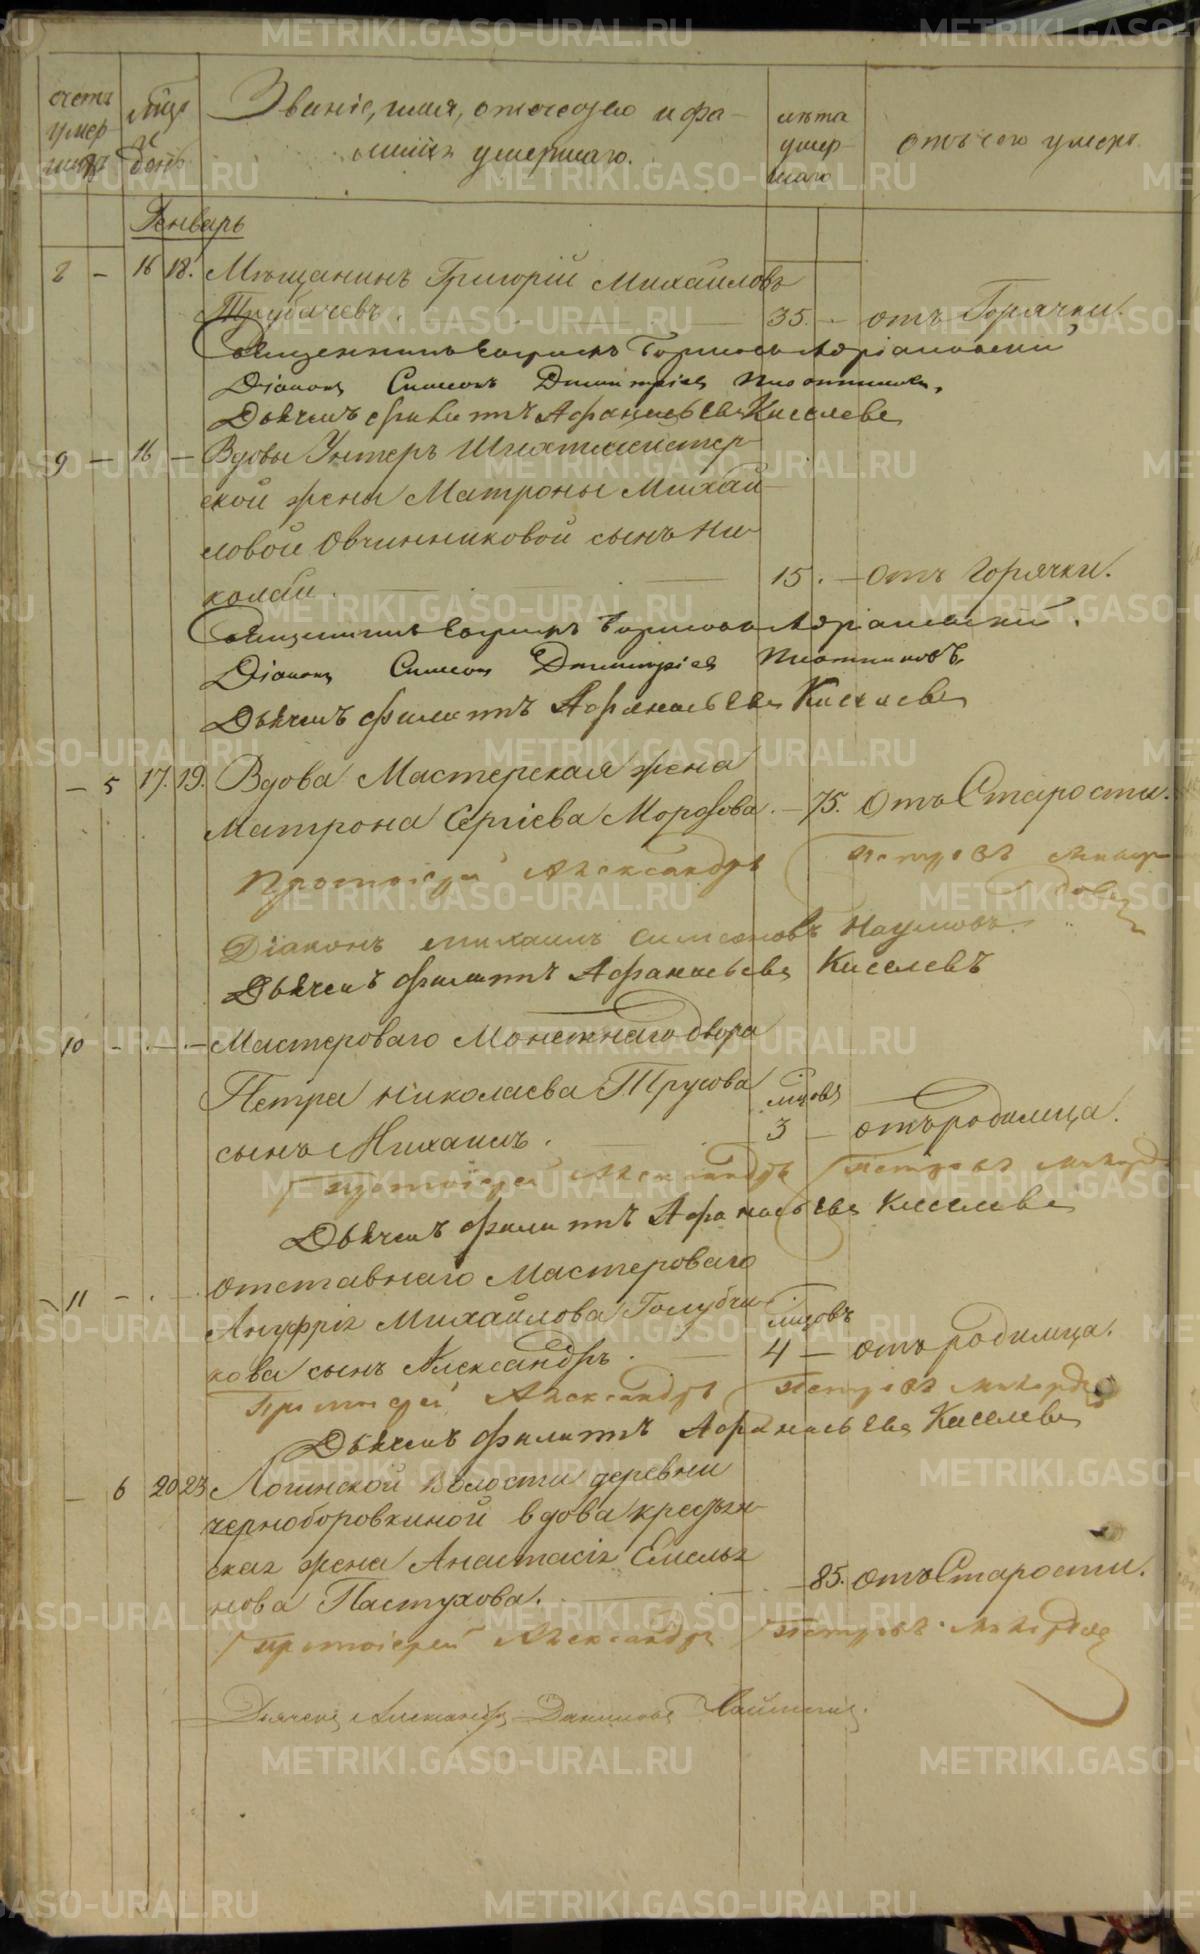 METRIKI.GASO-URAL.RU
счетъ умер- шихъ
Мѣсяцъ и день
Званіе, имя, отчество и фа-
милія умершаго.
лѣта умер- шаго
отъ чего умеръ
Генварь
8 – 16 18. Мѣщанинъ Григорій Михайловъ
Трубачевъ. 35. – отъ Горячки.
Священникъ Адріановскій
Діаконъ Симеонъ Димитріевъ Плотниковъ.
Дьячекъ Филиппъ Афанасьевъ Киселевъ
9 – 16 – Вдовы Унтеръ Шихтмейстер-
ской жены Матроны Михай-
ловой Овчинниковой сынъ Ни-
колай. 15. – отъ Горячки.
Священникъ Адріановскій.
Діаконъ Симеонъ Димитріевъ Плотниковъ.
Дьячекъ Филиппъ Афанасьевъ Киселевъ
– 5 17. 19. Вдова Мастерская жена
Матрона Сергіева Морозова. – 75. Отъ Старости.
Протоіерей Александръ Петровъ
Діаконъ Михаилъ Симеоновъ Наумовъ.
Дьячекъ Филиппъ Афанасьевъ Киселевъ
10 – . – . – Мастероваго Монетнаго двора
Петра Николаева Трусова
сынъ Михаилъ. мцовъ 3 – отъ родимца.
Протоіерей Александръ Петровъ
Дьячекъ Филиппъ Афанасьевъ Киселевъ
11 – . – Отставнаго Мастероваго
Ануфрія Михайлова Голубчи-
кова сынъ Александръ. мцовъ 4 – отъ родимца.
Протоіерей Александръ Петровъ
Дьячекъ Филиппъ Афанасьевъ Киселевъ
– 6 20 23 Логинской Волости деревни
черноборовкиной вдова крестьян-
ская жена Анастасія Емелья-
нова Пастухова. – 85. отъ Старости.
Протоіерей Александръ Петровъ
Дьячекъ Александръ Даниловъ